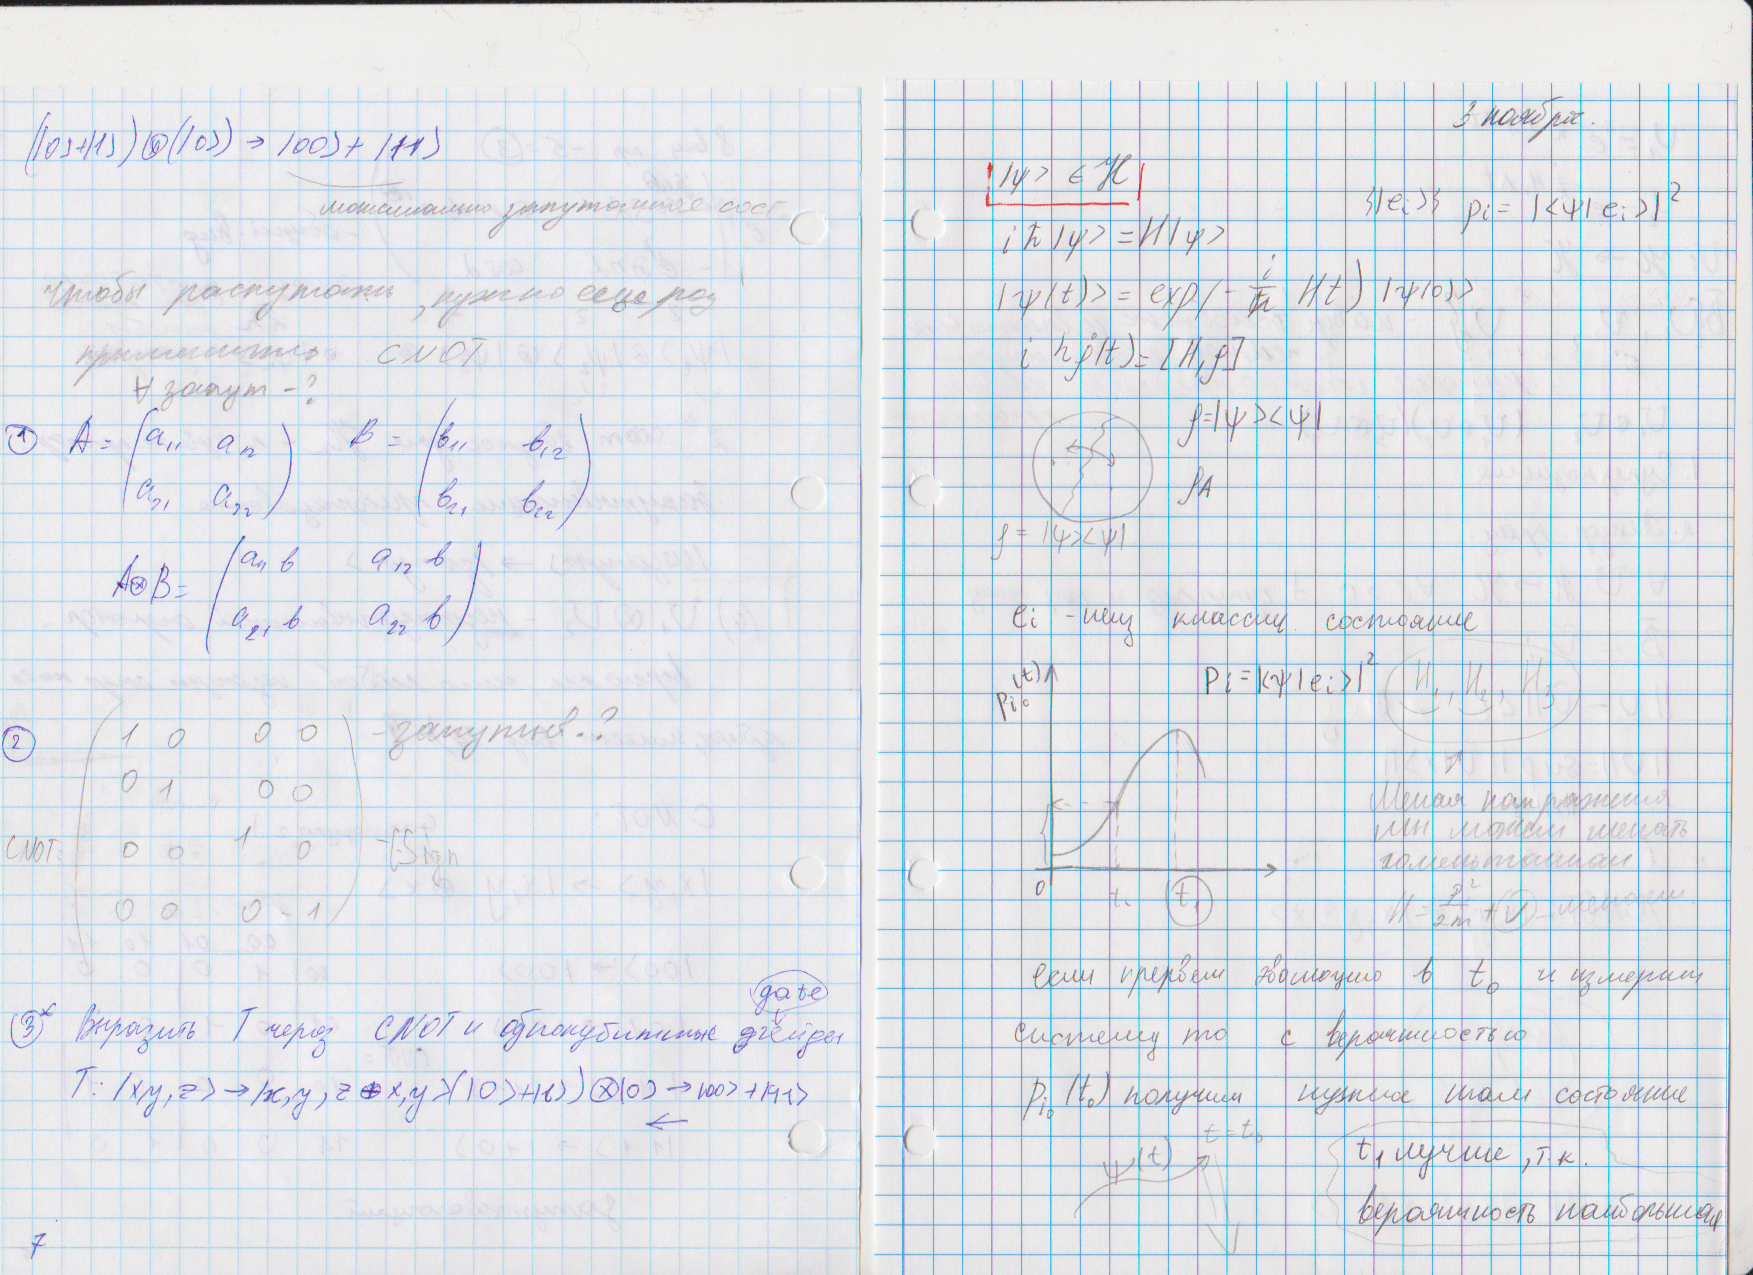 (|0>+|1>)⊗(|0>) → |00>+|11>
максимально запутанное сост
Чтобы распутать, нужно еще раз
применить CNOT
∀ запут -?
① A = (a₁₁ a₁₂ B = (b₁₁ b₁₂
a₂₁ a₂₂) b₂₁ b₂₂)
A⊗B = (a₁₁ b a₁₂ b
a₂₁ b a₂₂ b)
② (1 0 0 0 - запутыв.?
0 1 0 0
CNOT = 0 0 1 0 - CSign
0 0 0 -1)
gate
③* Выразить T через CNOT и однокубитные гейды
T: |x,y,z> → |x,y,z⊕x,y> (|0>+|1>)⊗|0> → |00>+|11>
←
7
3 ноября.
|ψ> ∈ ℋ
{|eᵢ>} pᵢ = |<ψ|eᵢ>|²
iħ|ψ> = H|ψ>
|ψ(t)> = exp(-i/ħ Ht) |ψ(0)>
iħρ̇(t) = [H,ρ]
ρ=|ψ><ψ|
ρA
ρ = |ψ><ψ|
eᵢ - классич. состояние
pᵢ₀(t) Pᵢ = |<ψ|eᵢ>|² H₁, H₂, H₃
Меняя напряжения
мы можем менять
гамильтониан
0 t₀ t₁ H = p²/2m + U - меняем.
если прервем эволюцию в t₀ и измерим
систему то с вероятностью
pᵢ₀(t₀) получим нужное нам состояние
ψ(t) t = t₀ t₁ лучше, т.к.
вероятность наибольшая